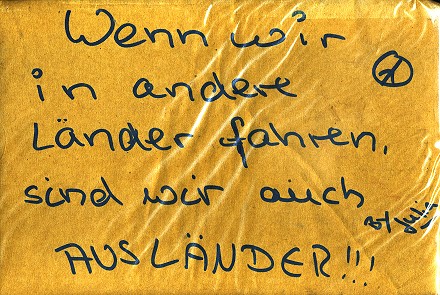 Wenn wir
in andere
Länder fahren,
sind wir auch
AUSLÄNDER!!!